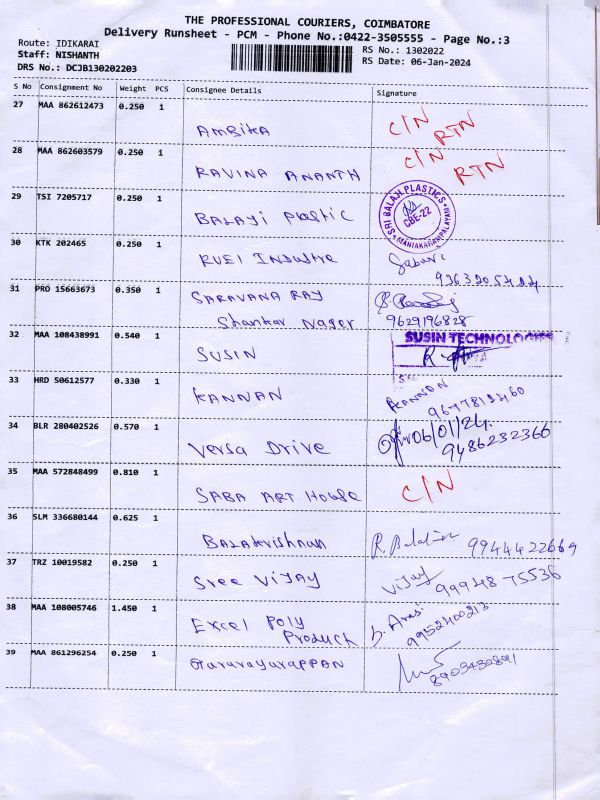 THE PROFESSIONAL COURIERS, COIMBATORE
Delivery Runsheet - PCM - Phone No.:0422-3505555 - Page No.:3
Route: IDIKARAI
RS No.: 1302022
Staff: NISHANTH
RS Date: 06-Jan-2024
DRS No.: DCJB130202203
S No Consignment No Weight PCS Consignee Details Signature
27 MAA 862612473 0.250 1 AMBIKA C/N RTN
28 MAA 862603579 0.250 1 RAVINA ANANTH C/N RTN
29 TSI 7205717 0.250 1 BALAJI Plastic
SRI BALAJI PLASTICS
CBE-22
MANIAKARAMPALAYAM
30 KTK 202465 0.250 1 RUEI Industrie
31 PRO 15663673 0.350 1 SARAVANA RAJ
Shankar Nager 9629196828
32 MAA 108438991 0.540 1 SUSIN SUSIN TECHNOLOGIES
33 HRD 50612577 0.330 1 KANNAN KANNAN
34 BLR 280402526 0.570 1 Versa Drive 06/01/24
9486232366
35 MAA 572848499 0.810 1 SABA ART House C/N
36 SLM 336680144 0.625 1 Balakrishnan 9944422669
37 TRZ 10019582 0.250 1 Sree Vijay Vijay 99948 75536
38 MAA 108005746 1.450 1 Excel Poly
Product 9952400213
39 MAA 861296254 0.250 1 Gururayurappan